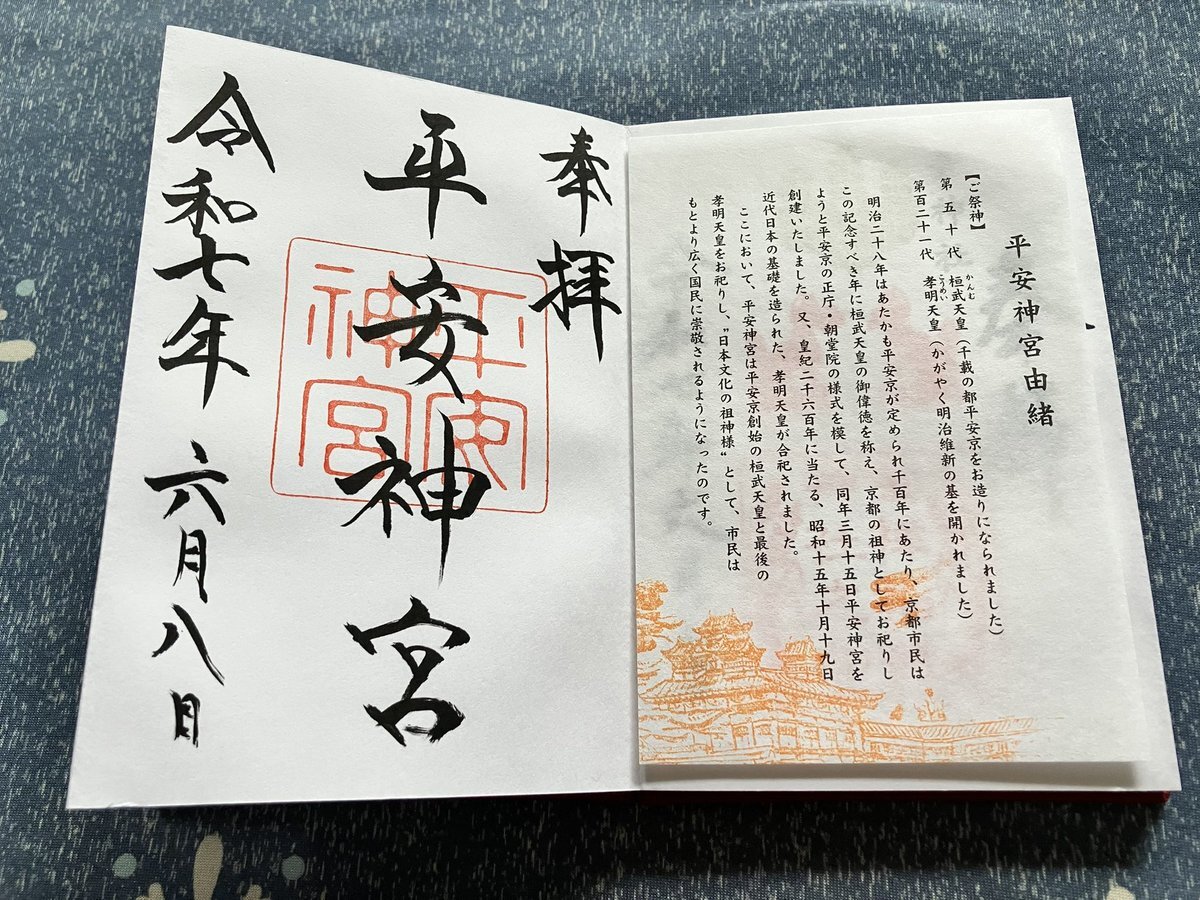 平安神宮由緒
【ご祭神】
第五十代　桓武天皇（千載の都平安京をお造りになられました）
かんむ
第百二十一代　孝明天皇（かがやく明治維新の基を開かれました）
こうめい
明治二十八年はあたかも平安京が定められ千百年にあたり、京都市民は
この記念すべき年に桓武天皇の御偉徳を称え、京都の祖神としてお祀りし
ようと平安京の正庁・朝堂院の様式を模して、同年三月十五日平安神宮を
創建いたしました。又、皇紀二千六百年に当たる、昭和十五年十月十九日
近代日本の基礎を造られた、孝明天皇が合祀されました。
ここにおいて、平安神宮は平安京創始の桓武天皇と最後の
孝明天皇をお祀りし、〝日本文化の祖神様〟として、市民は
もとより広く国民に崇敬されるようになったのです。
奉拝
平安神宮
平安神宮
令和七年 六月八日